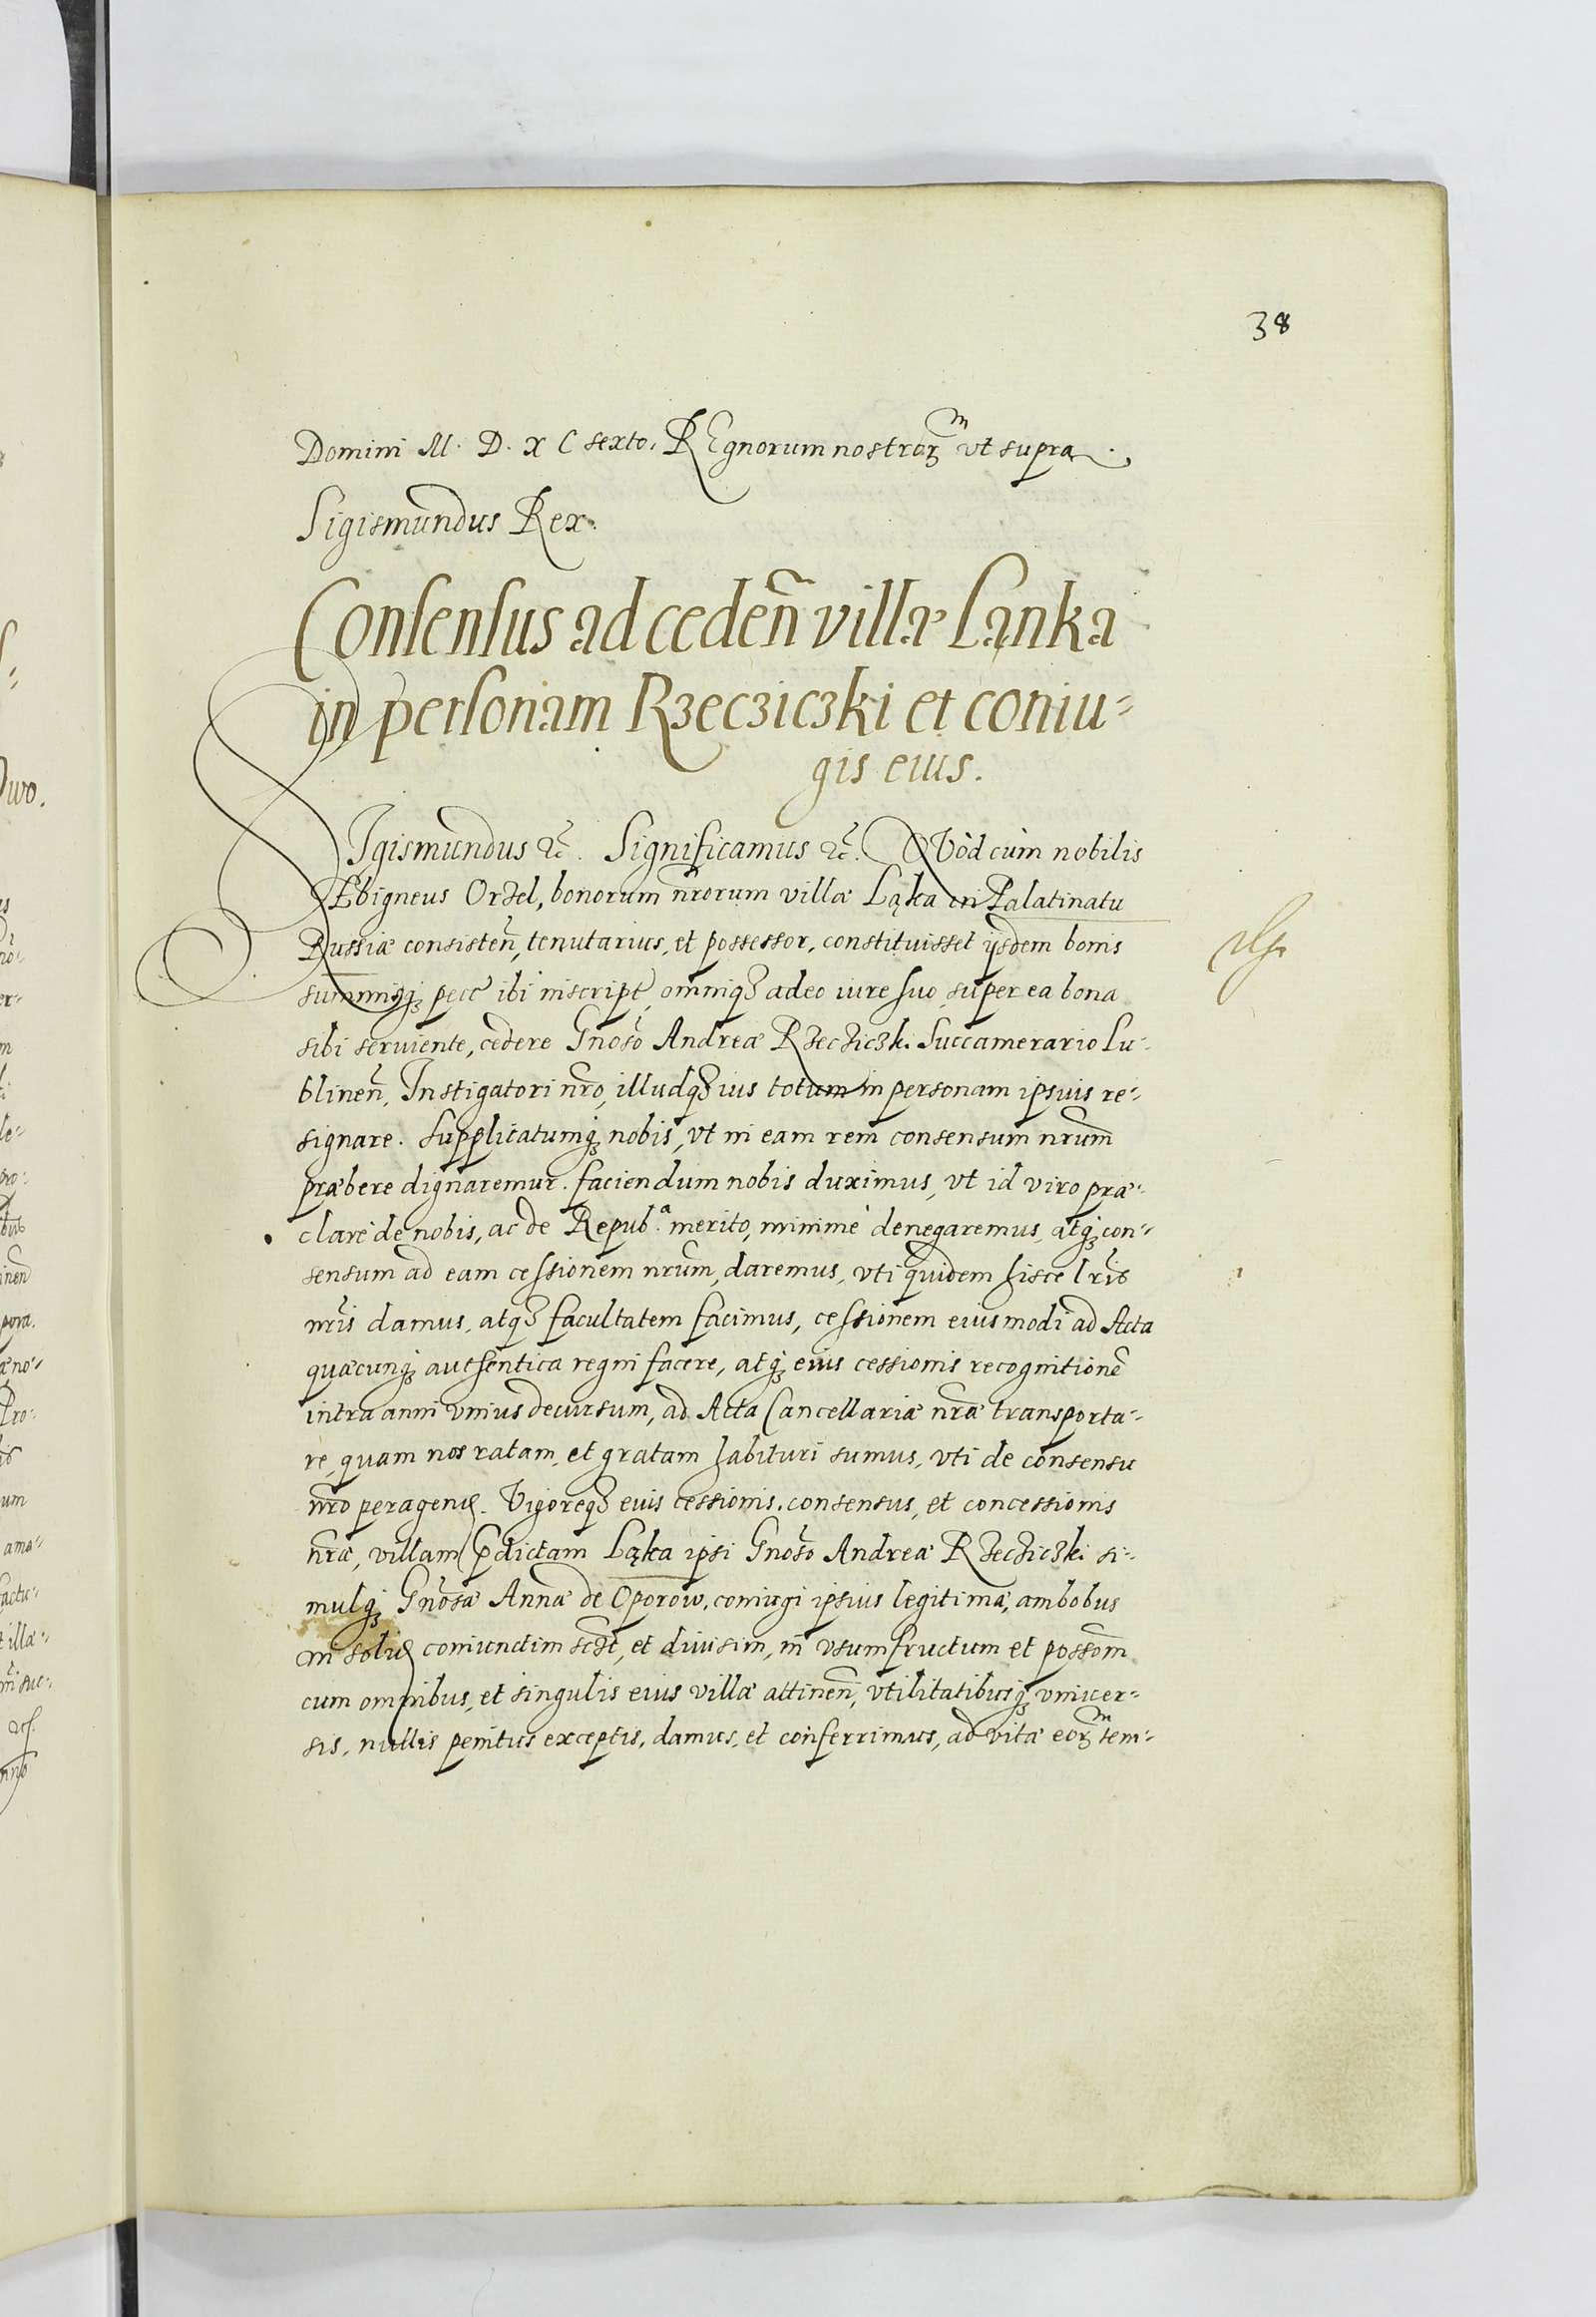 38
Domini M. D. X C sexto. REgnorum nostror̃ꝫ vt supra.
Sigismundus Rex.
Consensus ad ceden̄ villæ Lanka
in personam Rzecziczki et coniu=
gis eius.
SIgismundus ⁊c̃. Significamus ⁊c̃. QVòd cùm nobilis
Zbigneus Orzel, bonorum nr̃orum villæ Ląka in Palatinatu
Russiæ consisten̄, tenutarius, et possessor, constituisset ijsdem bonis
summisqꝫ pecc̃ ibi inscript̃, omniqꝫ adeo iure suo super ea bona
sibi seruiente, cedere Gnoso̅ Andreæ Rzecziczk. Succamerario Lu-
blinen̄, Instigatori nr̃o, illudqꝫ ius totum in personam ipsius re-
signare. Supplicatumqꝫ nobis, vt in eam rem consensum nr̃um
præbere dignaremur. faciendum nobis duximus, vt id viro præ-
clarè de nobis, ac de Repub.ᵃ merito, minimè denegaremus, atqꝫ con-
sensum ad eam cessionem nr̃um, daremus, vti quidem hisce lr̃is
nr̃is damus, atqꝫ facultatem facimus, cessionem eiusmodi ad Acta
quæcunqꝫ authentica regni facere, atqꝫ eius cessionis recognitionē
intra anni vnius decursum, ad Acta Cancellariæ nr̃æ transporta-
re, quam nos ratam, et gratam habituri sumus, vti de consensu
nr̃o peragen̄. Vigoreqꝫ eius cessionis, consensus, et concessionis
nr̃æ, villam p̃dictam Ląka ipsi Gnoso̅ Andreæ Rzecziczki si-
mulqꝫ Gnosæ̅ Annæ de Oporow, coniugi ipsius legitimæ, ambobus
in coniunctim et diuisim, in vsumfructum et possom̅
cum omnibus, et singulis eius villæ attinen̄, vtilitatibusqꝫ vniuer-
sis, nullis penitus exceptis, damus, et conferrimus, ad vitæ eor̃ꝫ tem-